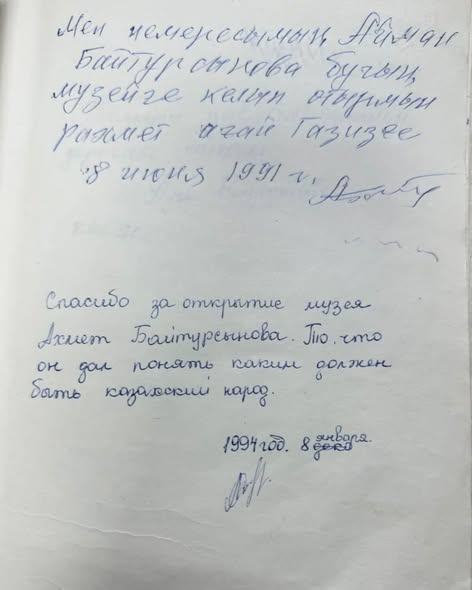 Мен немересымың Айман
Байтурсынова бугың
музейге келып отырмын
рахмет ағай Газизге
8 июня 1991 г.
Спасибо за открытие музея
Ахмет Байтурсынова. То, что
он дал понять каким должен
быть казахский народ.
1994 год. 8 января.